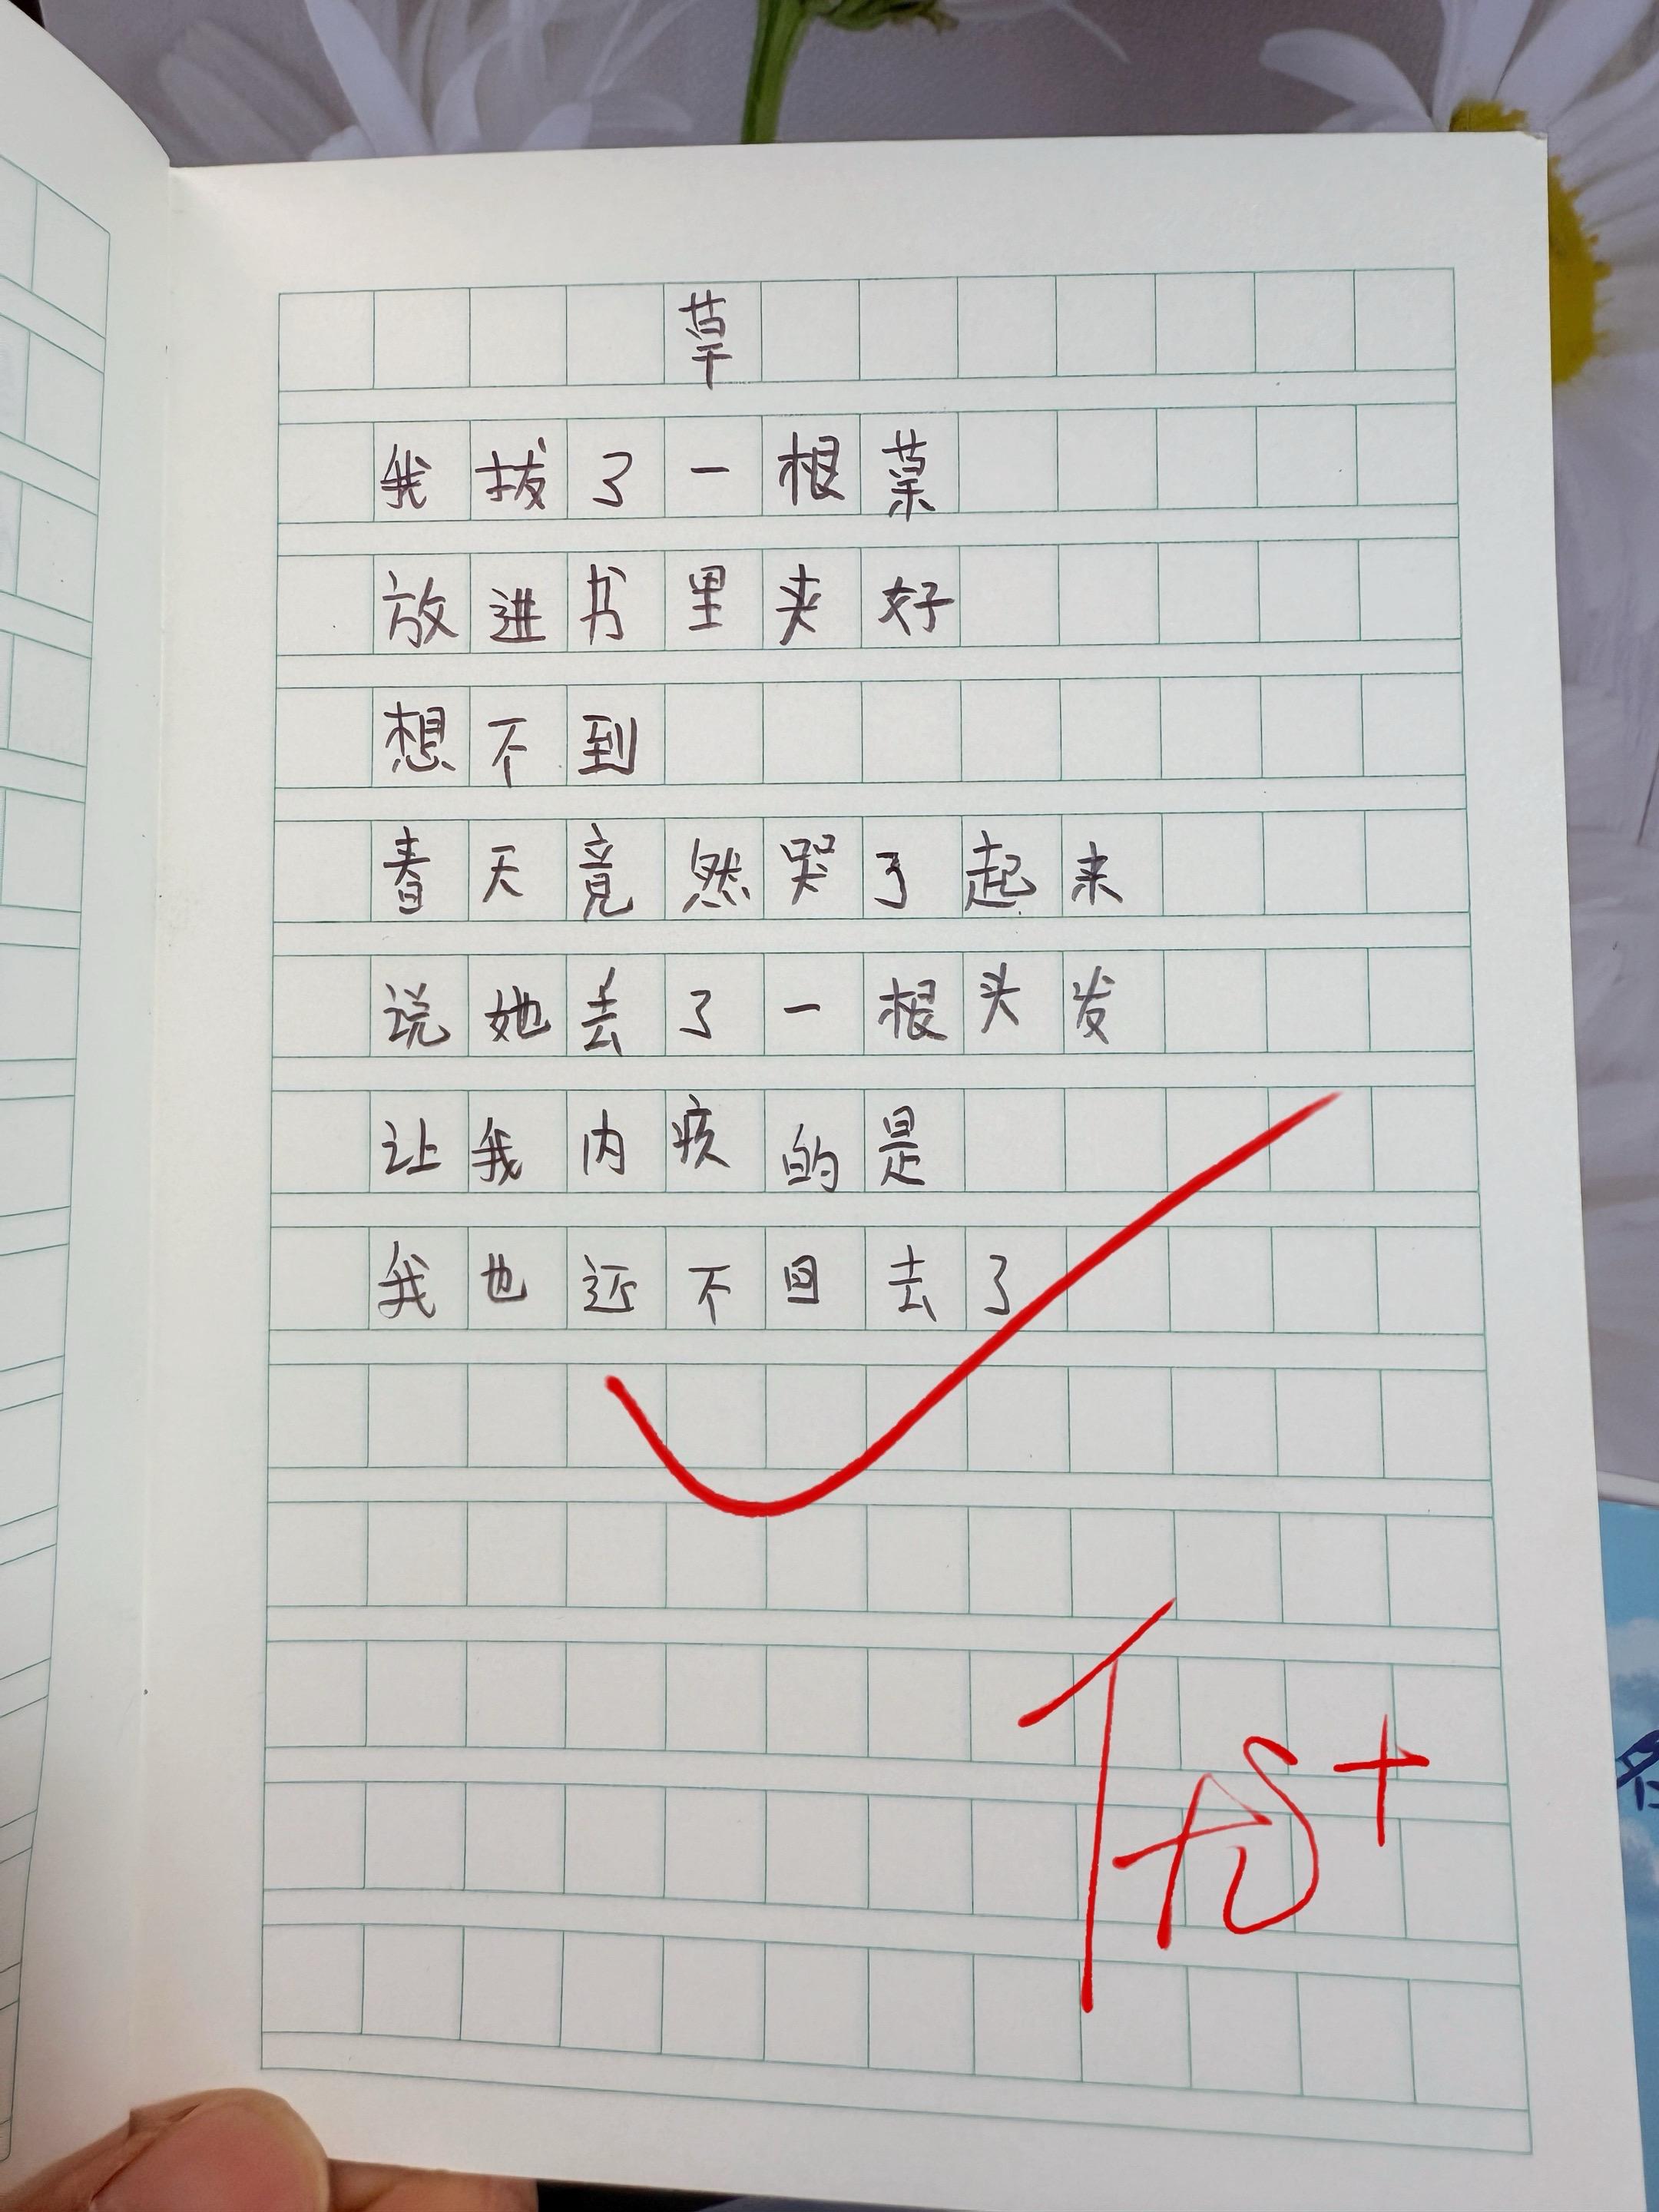 草
我拔了一根草
放进书里夹好
想不到
春天竟然哭了起来
说她丢了一根头发
让我内疚的是
我也还不回去了
优+